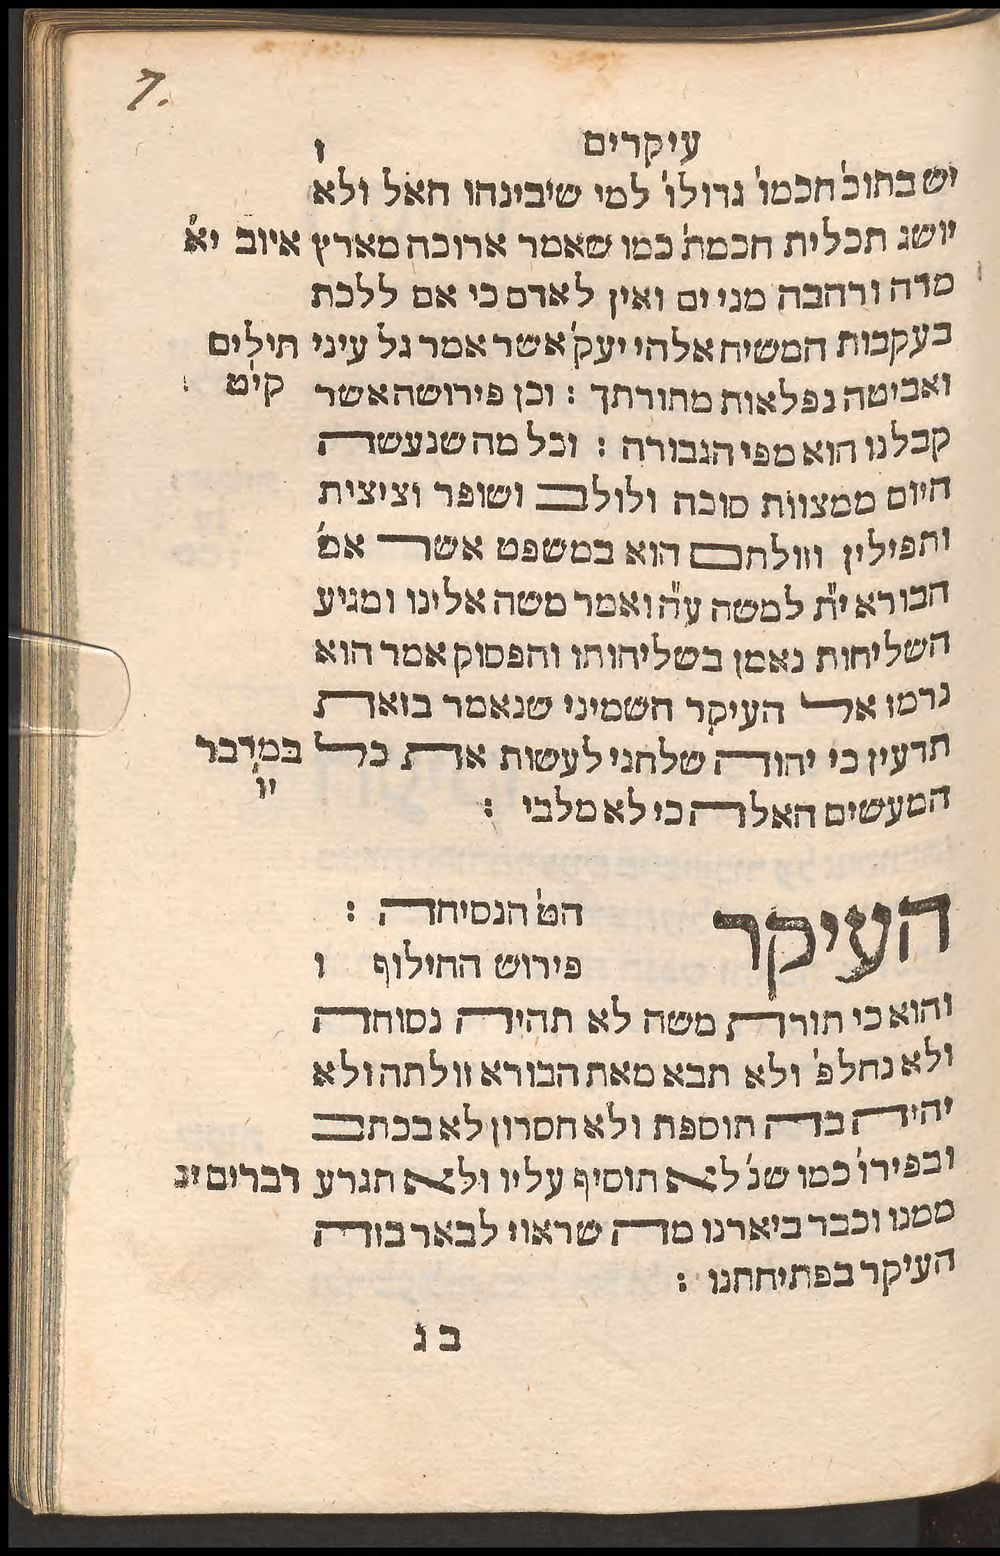 7.
עיקרים ו
יש בתוכ׳ חכמו׳ גדולו׳ למי שיבינהו האל ולא
יושג תכלית חכמת׳ כמו שאמר ארוכה מארץ איוב יא׳
מדה ורחבה מני ים ואין לאדם כי אם ללכת
בעקבות המשיח אלהי יעק׳ אשר אמר גל עיני תילים
ואביטה נפלאות מתורתך : וכן פירושה אשר קיט
קבלנו הוא מפי הגבורה : וכל מה שנעשה
היום ממצוות סוכה ולולב ושופר וציצית
ותפילין וזולתם הוא במשפט אשר אמ׳
הבורא ית׳ למשה ע״ה ואמר משה אלינו ומגיע
השליחות נאמן בשליהותו והפסוק אמר הוא
גרמו אל העיקר השמיני שנאמר בזאת
תדעין כי יהוה שלחני לעשות את כל במדבר
המעשים האלה כי לא מלבי : יו׳
העיקר הט׳ הנסיחה :
פירוש החילוף ו
והוא כי תורת משה לא תהיה נסוחה
ולא נחלפ׳ ולא תבא מאת הבורא זולתה ולא
יהיה בה תוספת ולא חסרון לא בכתב
ובפירו׳ כמו שנ׳ לא תוסיף עליו ולא תגרע דברים יג
ממנו וכבר ביארנו מה שראוי לבאר בזה
העיקר בפתיחתנו :
ב ג